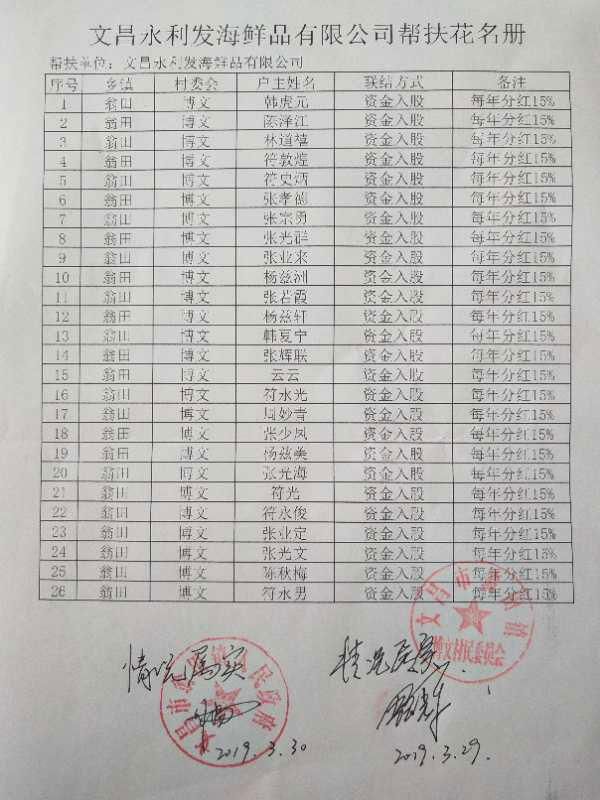 文昌永利发海鲜品有限公司帮扶花名册
帮扶单位：文昌永利发海鲜品有限公司
序号 乡镇 村委会 户主姓名 联结方式 备注
1 翁田 博文 韩虎元 资金入股 每年分红15%
2 翁田 博文 陈泽江 资金入股 每年分红15%
3 翁田 博文 林道禧 资金入股 每年分红15%
4 翁田 博文 符敦煌 资金入股 每年分红15%
5 翁田 博文 符史炳 资金入股 每年分红15%
6 翁田 博文 张孝德 资金入股 每年分红15%
7 翁田 博文 张宗勇 资金入股 每年分红15%
8 翁田 博文 张光群 资金入股 每年分红15%
9 翁田 博文 张业来 资金入股 每年分红15%
10 翁田 博文 杨兹洲 资金入股 每年分红15%
11 翁田 博文 张若霞 资金入股 每年分红15%
12 翁田 博文 杨兹轩 资金入股 每年分红15%
13 翁田 博文 韩夏宁 资金入股 每年分红15%
14 翁田 博文 张辉联 资金入股 每年分红15%
15 翁田 博文 云云 资金入股 每年分红15%
16 翁田 博文 符永光 资金入股 每年分红15%
17 翁田 博文 周妙青 资金入股 每年分红15%
18 翁田 博文 张少凤 资金入股 每年分红15%
19 翁田 博文 杨兹美 资金入股 每年分红15%
20 翁田 博文 张光海 资金入股 每年分红15%
21 翁田 博文 符光 资金入股 每年分红15%
22 翁田 博文 符永俊 资金入股 每年分红15%
23 翁田 博文 张业定 资金入股 每年分红15%
24 翁田 博文 张光文 资金入股 每年分红15%
25 翁田 博文 陈秋梅 资金入股 每年分红15%
26 翁田 博文 符永男 资金入股 每年分红15%
文昌市翁田镇
博文村民委员会
文昌市翁田镇人民政府
情况属实 情况属实
2019.3.30 2019.3.29.